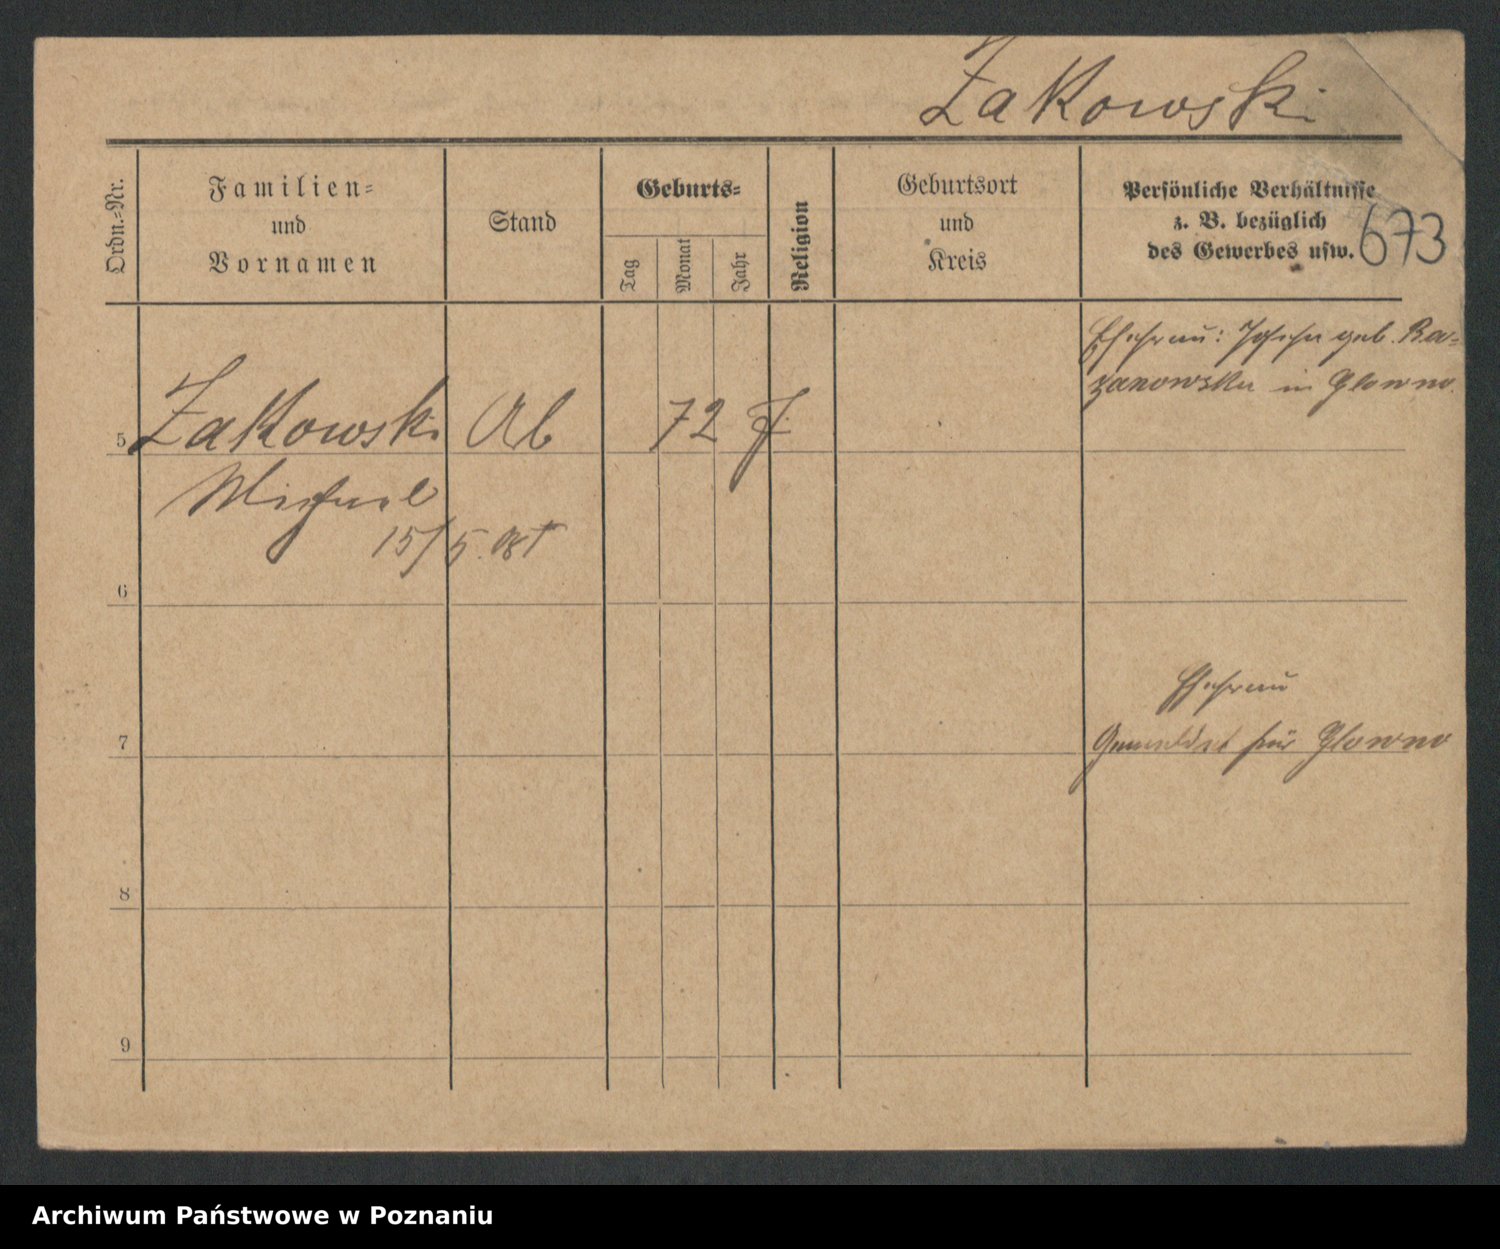 Zakowski
Ordn.-Nr.
Familien-
und
Vornamen
Stand
Geburts-
Tag
Monat
Jahr
Religion
Geburtsort
und
Kreis
Persönliche Verhältnisse
z. B. bezüglich
des Gewerbes usw.
673
Ehefrau: geb. Ra-
zanowska in Glowno
5 Zakowski Ab 72
Michael
15/5.
6
Ehefrau
7 Gemeldet für Glowno
8
9
Archiwum Państwowe w Poznaniu